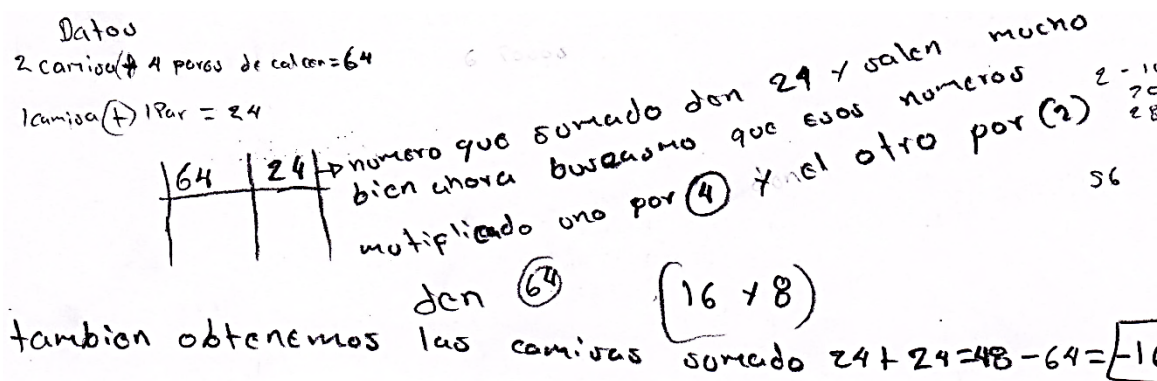 Datos
2 camisa(+) 4 pares de calcen=64
1camisa(+) 1Par = 24
64 | 24 → numero que sumado den 24 y salen mucho
bien ahora buscasmo que esos numeros
mutiplicado uno por (4) y el otro por (2)
den (64) (16 y 8)
2 - 16
56
tambien obtenemos las camisas sumado 24+24=48-64=-16